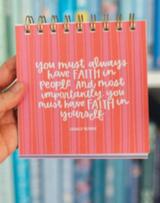 you must always
have FAITH in
people. And most
importantly, you
must have FAITH in
yourself.